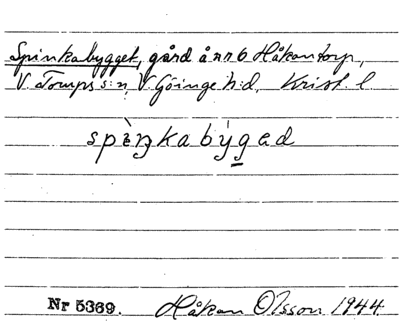 Spinkabygget, gård å nr 6 Håkantorp,
V. Torups s:n, V. Göinge h:d, Krist. l.
spèŋkabýgad
Nr 5369. Håkan Olsson 1944.